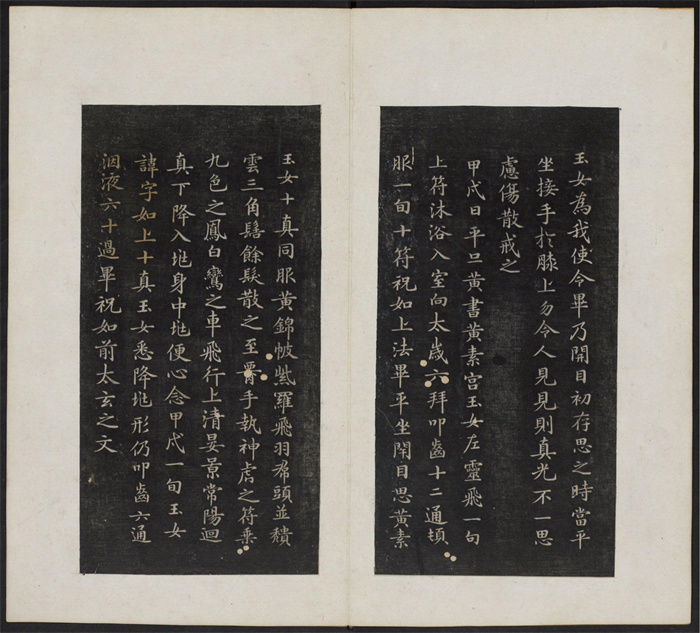 玉女為我使令畢乃開目初存思之時當平
坐接手於膝上勿令人見見則真光不一思
慮傷散戒之
甲戌日平旦黃書黃素宮玉女左靈飛一旬
上符沐浴入室向太歲六拜叩齒十二通頓
服一旬十符祝如上法畢平坐閉目思黃素
玉女十真同服黃錦帔紫羅飛羽帬頭並頹
雲三角髻餘髮散之至腰手執神虎之符乗
九色之鳳白鸞之車飛行上清晏景常陽迴
真下降入兆身中兆便心念甲戌一旬玉女
諱字如上十真玉女悉降兆形仍叩齒六通
咽液六十過畢祝如前太玄之文